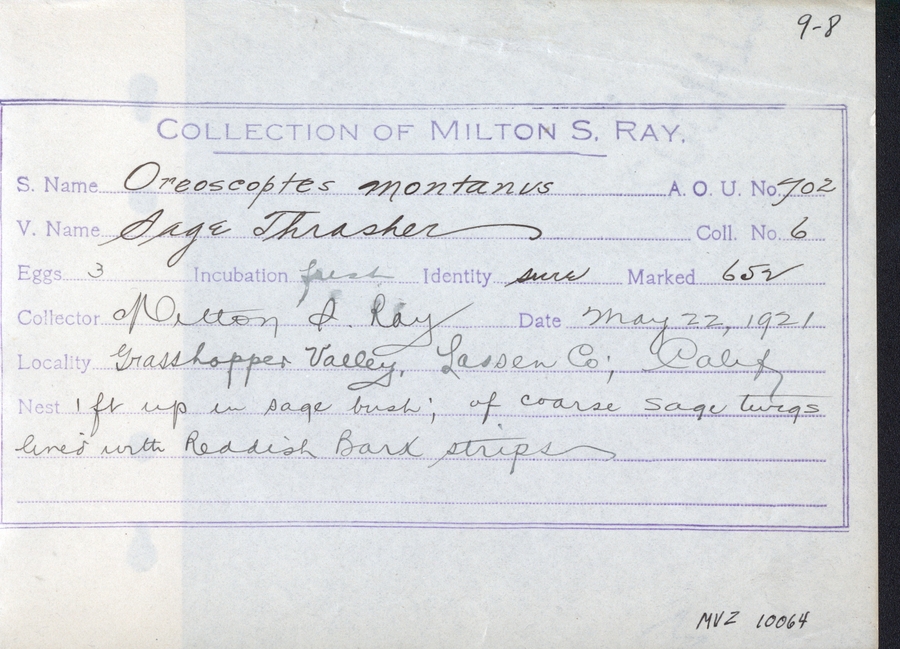 9-8
COLLECTION OF MILTON S. RAY.
S. Name Oreoscoptes montanus A. O. U. No. 702
V. Name Sage Thrasher Coll. No. 6
Eggs 3 Incubation fresh Identity sure Marked 652
Collector Milton S. Ray Date May 22, 1921
Locality Grasshopper Valley, Lassen Co; Calif
Nest 1 ft up in sage bush; of coarse sage twigs
lined with Reddish Bark strips
MVZ 10064